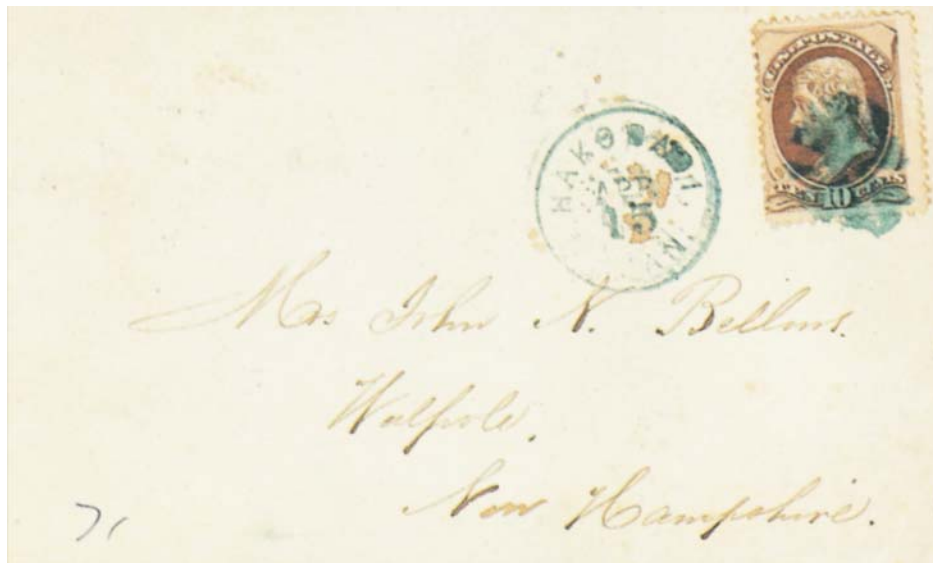 U.S. POSTAGE
TEN 10 CENTS
HAKODADI
APR
15
Mrs. John N. Bellows.
Walpole.
New Hampshire.